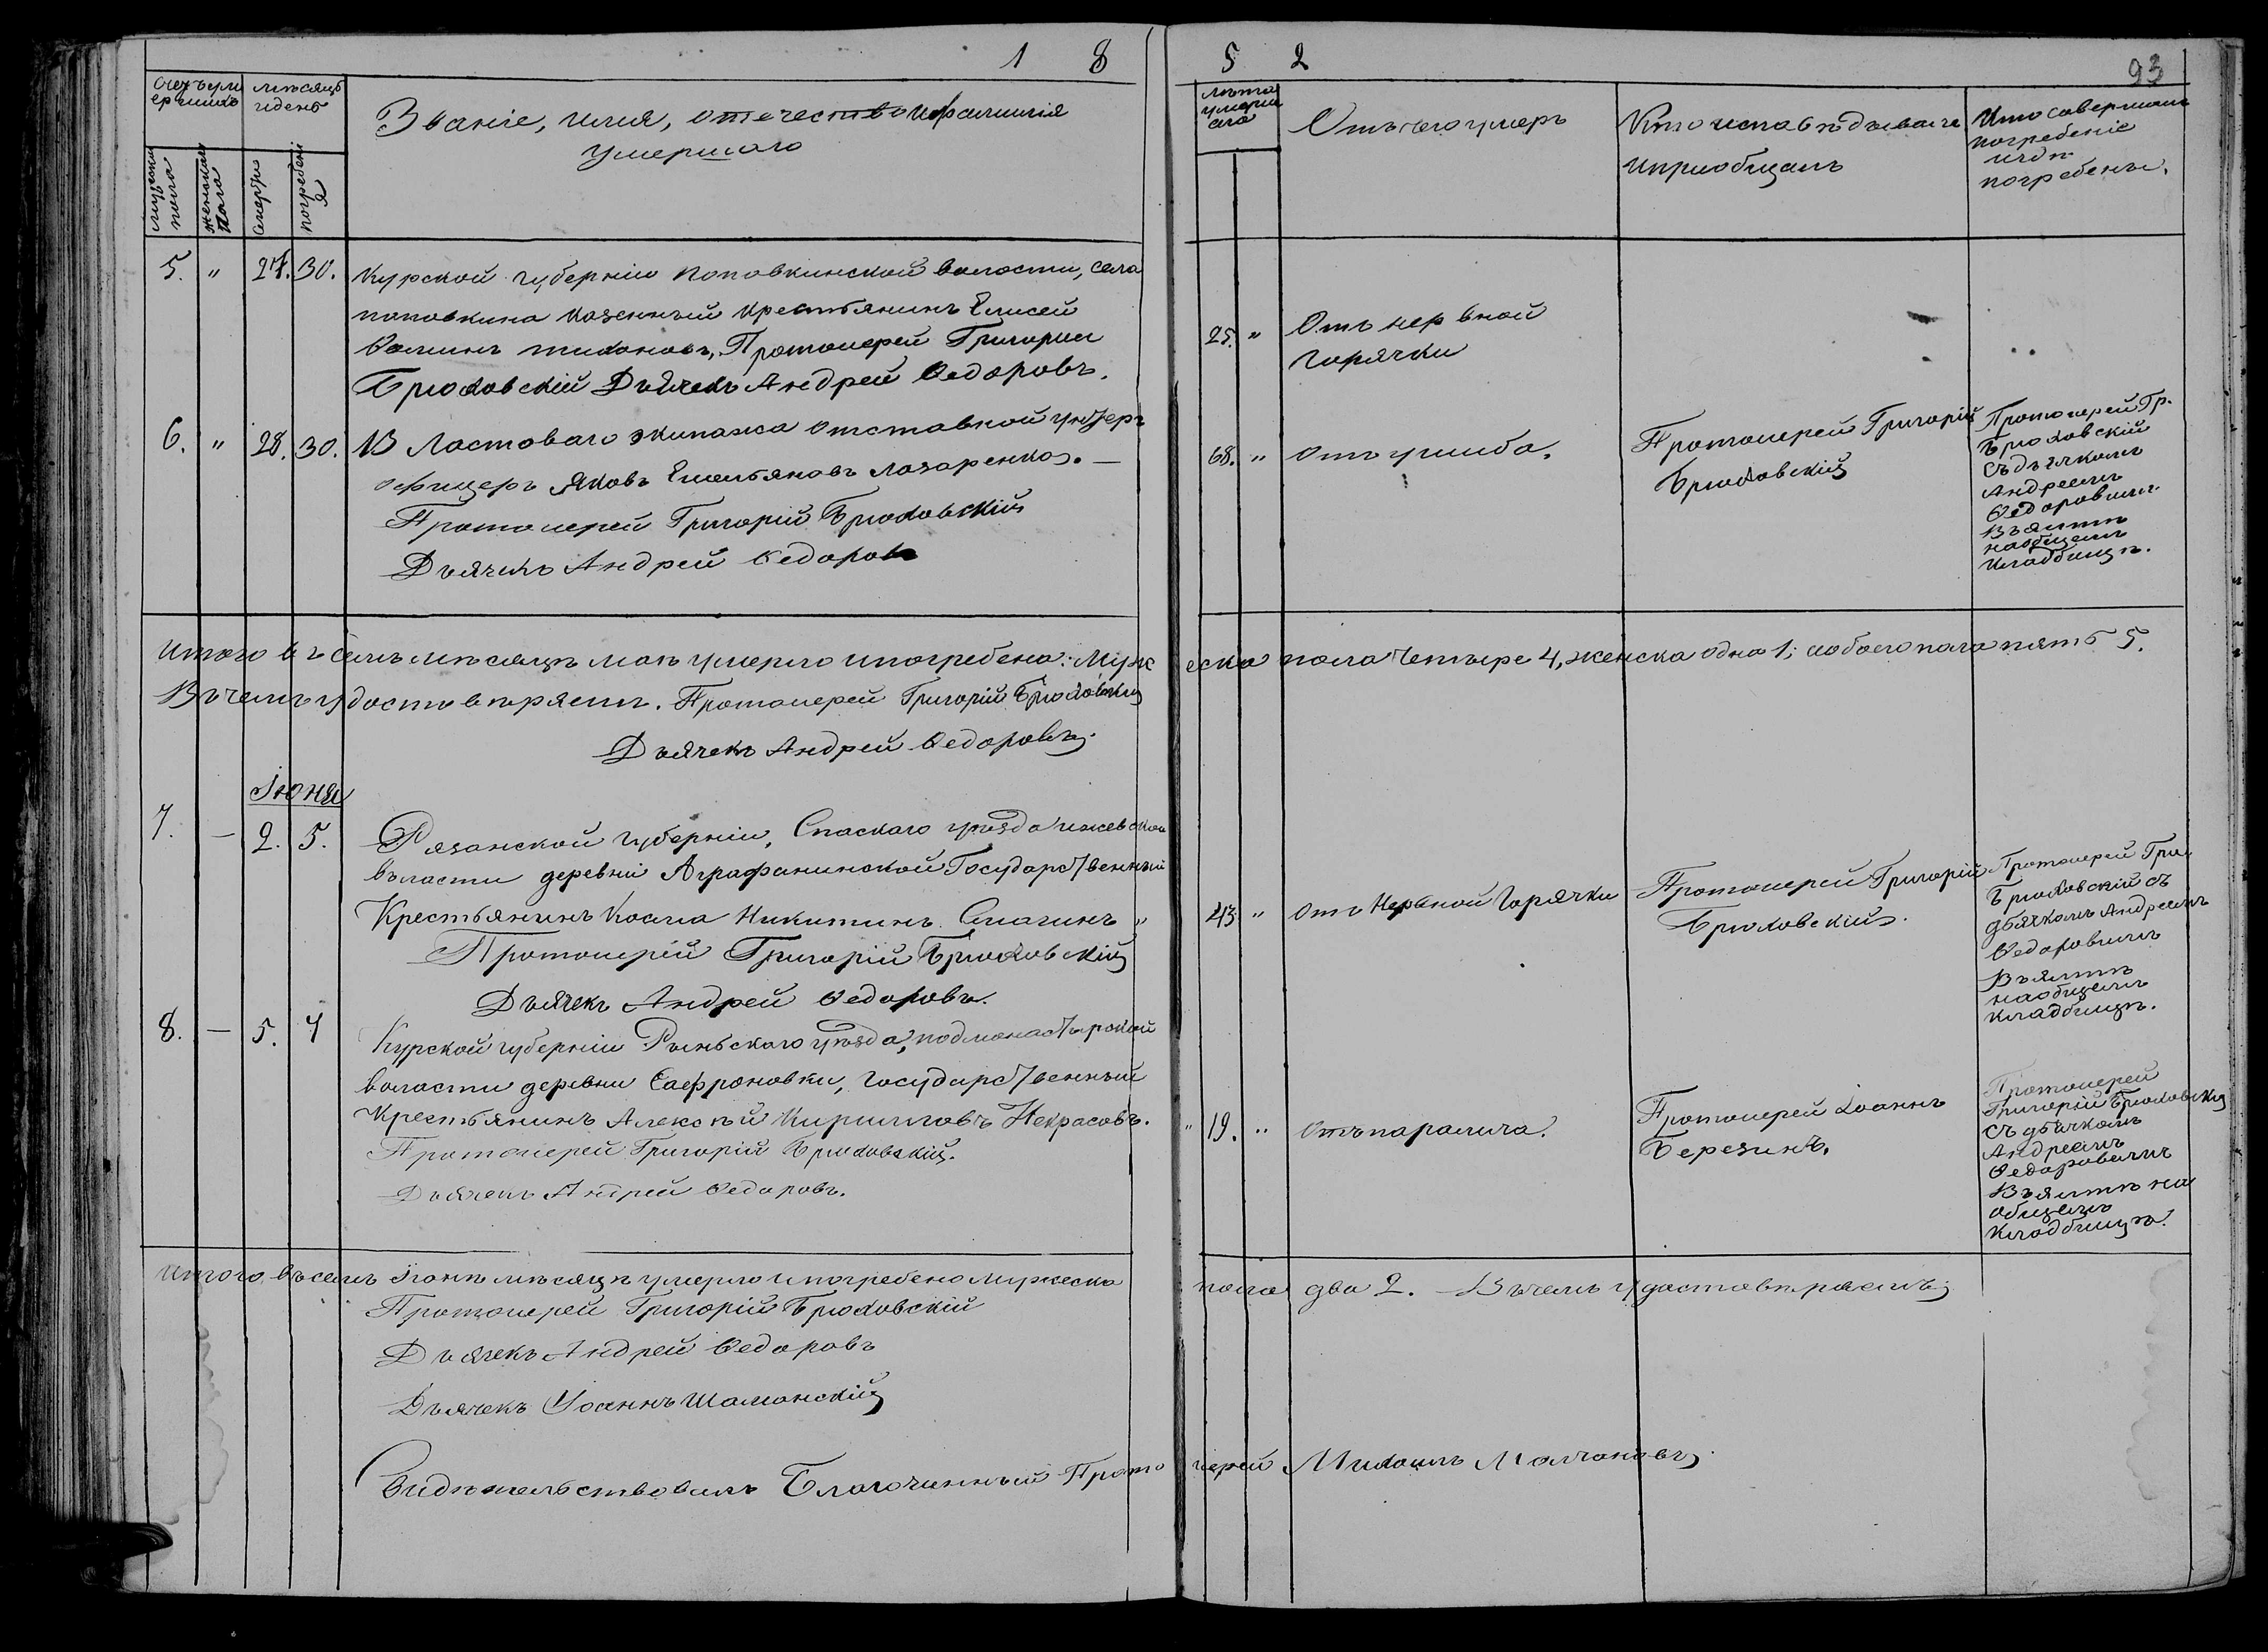 1 8 5 2
93
Счетъ умершихъ
мѣсяцъ и день
Званіе, имя, отечество и фамилія
умершаго
мужеска пола
женскаго пола
смерти
погребенія
лѣта умершаго
Отъ чего умеръ
Кто исповѣдывалъ
и пріобщалъ
Кто совершалъ
погребеніе
и гдѣ
погребены.
5. " 27. 30. Курской губерніи Поповкинской волости, села
поповкина казенный крестьянинъ Елисей
Фоминъ тихоновъ, Протоіерей Григорій
Брюховскій Дьячекъ Андрей Ѳедоровъ.
25. " Отъ нервной
горячки
6. " 28. 30. В Ластоваго экипажа отставной унтеръ
офицеръ Яковъ Емельяновъ Лазаренко. —
Протоіерей Григорій Брюховскій
Дьячекъ Андрей Ѳедоровъ
68. " отъ ушиба.
Протоіерей Григорій
Брюховскій
Протоіерей Гр.
Брюховскій
съ дьячкомъ
Андреемъ
Ѳедоровымъ
Въ Ялтѣ
на общемъ
кладбищѣ.
Итого въ семъ мѣсяцѣ маѣ умерло и погребено: Мужеска пола четыре 4, женска одно 1; и обоего пола пять 5.
В чемъ удостовѣряемъ. Протоіерей Григорій Брюховскій
Дьячекъ Андрей Ѳедоровъ
Іюня
7. — 2. 5. Рязанской губерніи, Спаскаго уѣзда ижевской
волости деревни Аграфанинской Государственный
Крестьянинъ Косма Никитинъ Смагинъ "
Протоіерей Григорій Брюховскій
Дьячекъ Андрей Ѳедоровъ.
43 " отъ Нервной Горячки
Протоіерей Григорій
Брюховскій.
Протоіерей Гри.
Брюховскій съ
дьячкомъ Андреемъ
Ѳедоровымъ
Въ Ялтѣ
на общемъ
кладбищѣ.
8. — 5. 7 Курской губерніи Рыльскаго уѣзда, подмонастырской
волости деревни Сафроновки, государственный
Крестьянинъ Алексѣй Кирилловъ Некрасовъ.
Протоіерей Григорій Брюховскій.
Дьячекъ Андрей Ѳедоровъ.
" 19. " отъ паралича.
Протоіерей Іоаннъ
Березинъ.
Протоіерей
Григорій Брюховскій
съ дьячкомъ
Андреемъ
Ѳедоровымъ
Въ Ялтѣ на
общемъ
кладбищѣ.
Итого въ семъ Іюнѣ мѣсяцѣ умерло и погребено Мужеска пола два 2. — В чемъ удостовѣряемъ
Протоіерей Григорій Брюховскій
Дьячекъ Андрей Ѳедоровъ
Дьячекъ Іоаннъ Шаманскій
Свидѣтельствовалъ Благочинный Протоіерей Михаилъ Молчановъ.